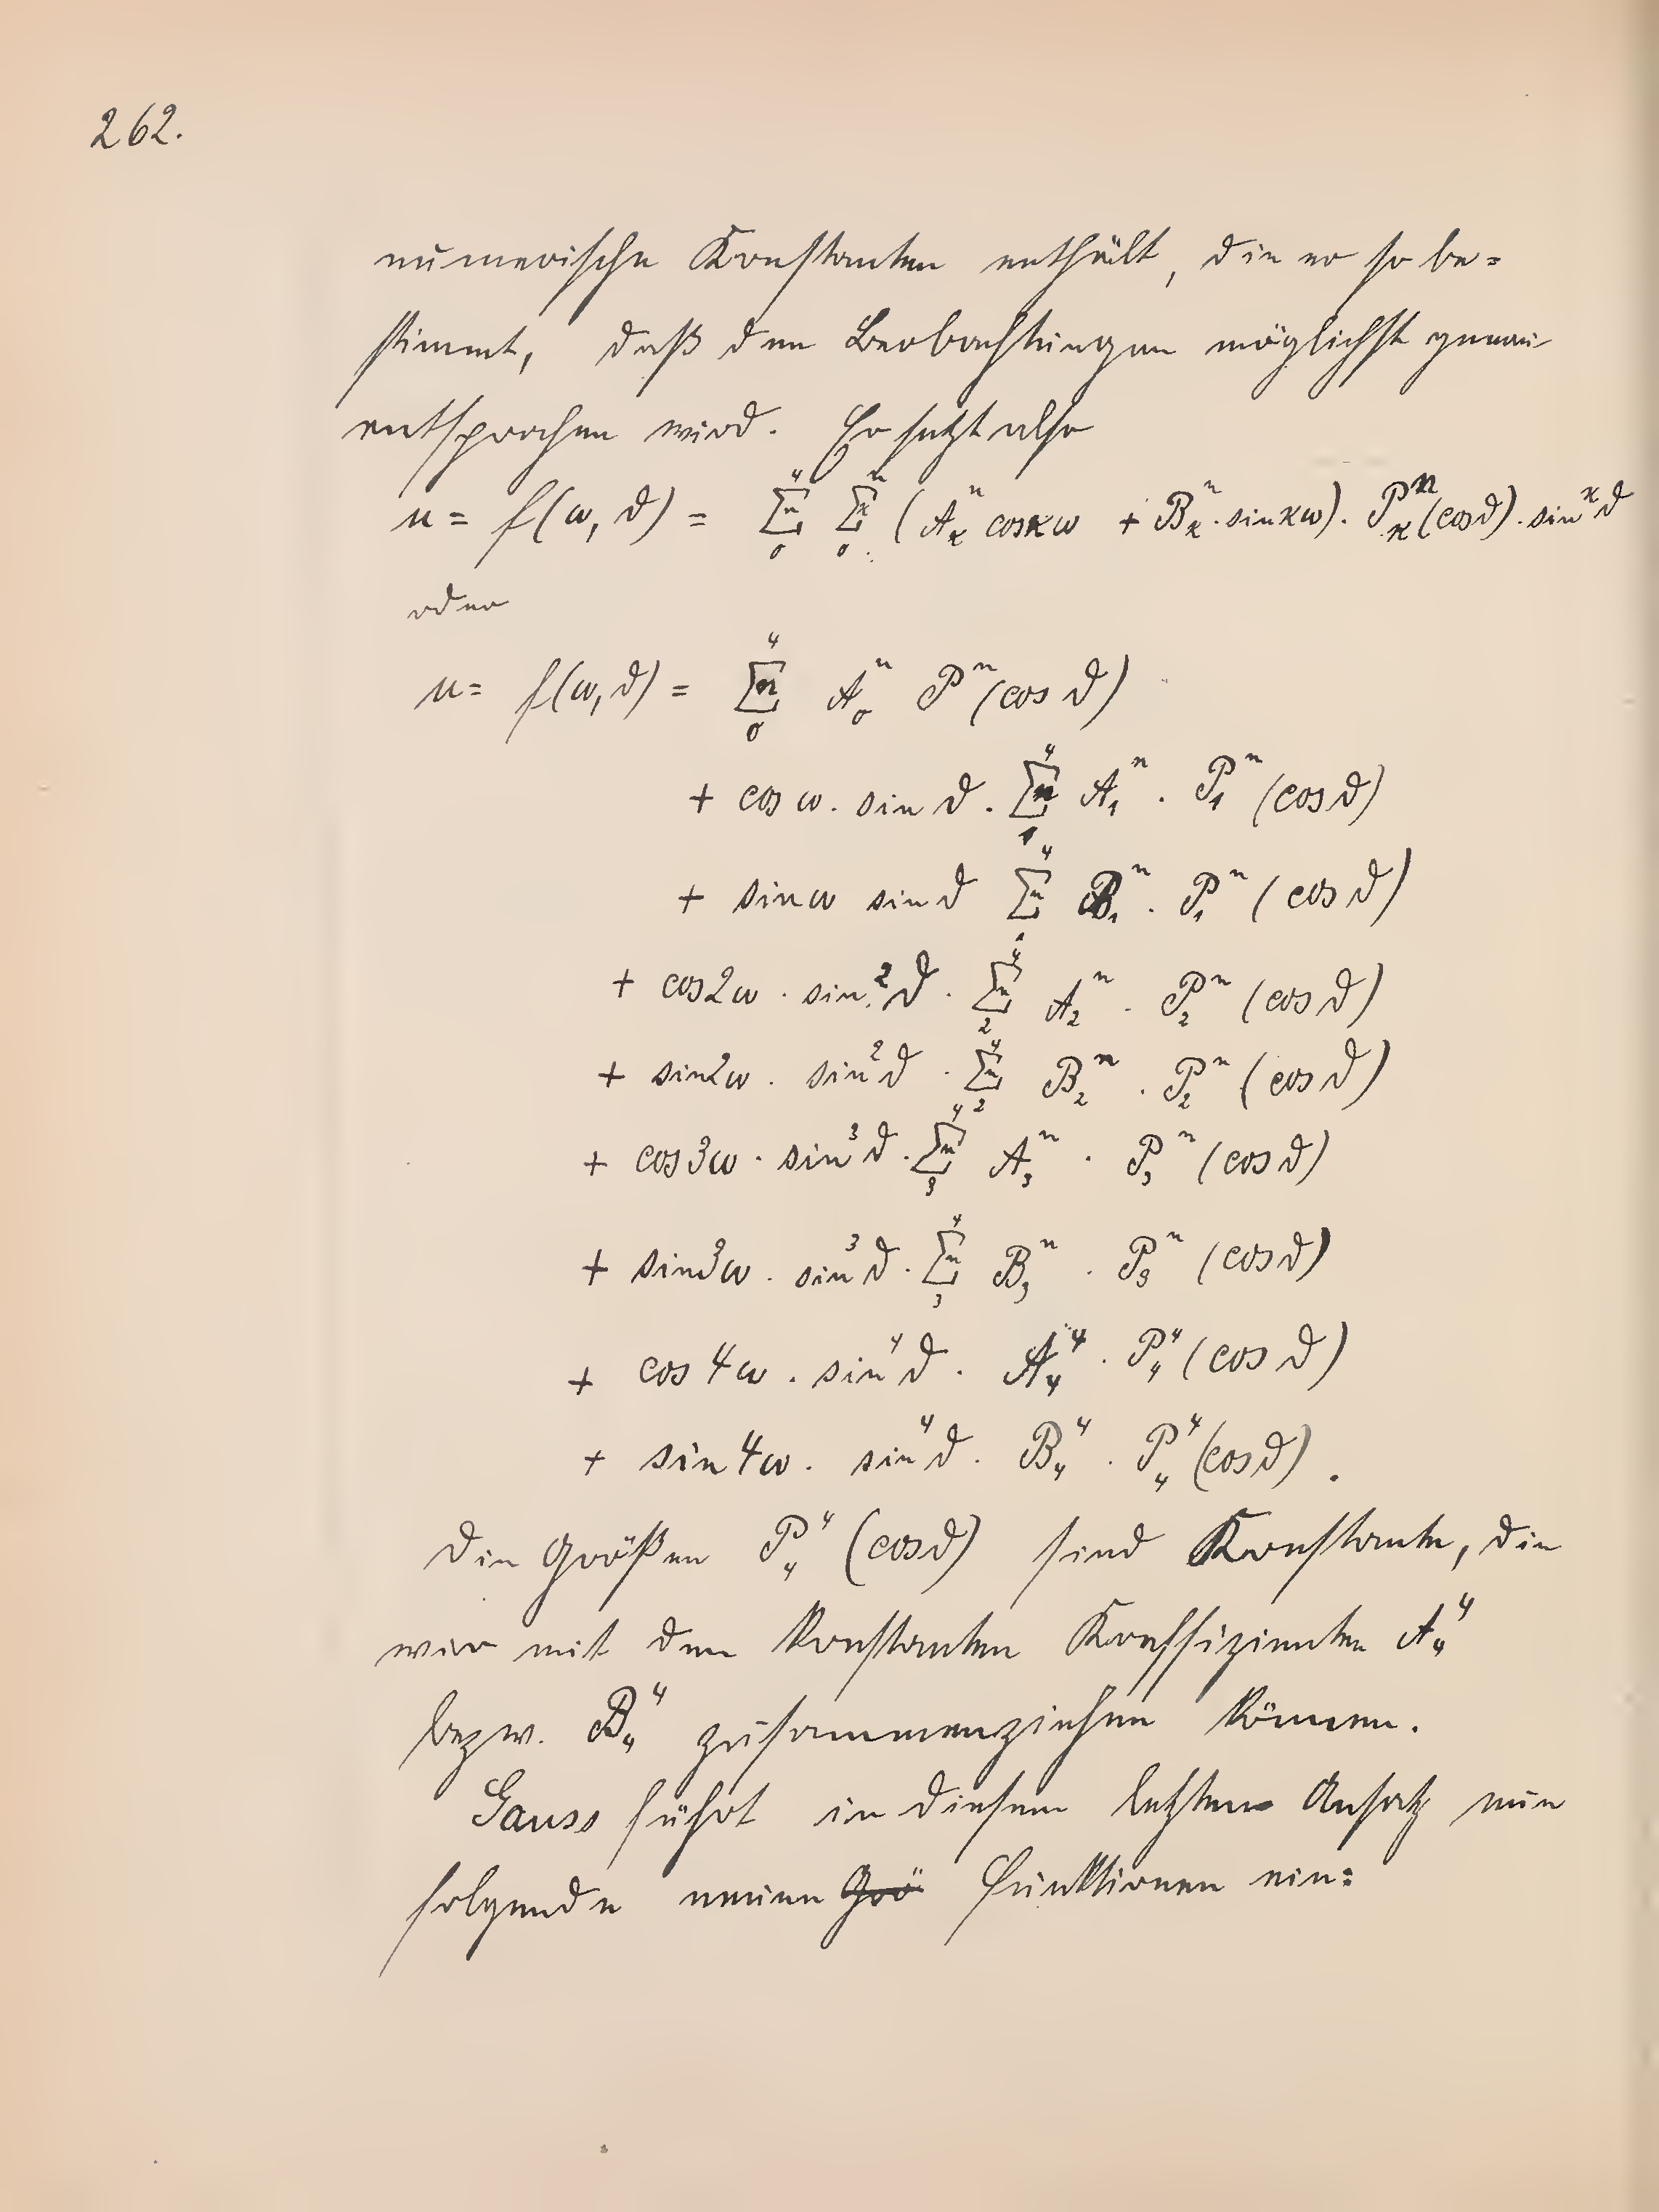 262.
numerische Konstanten enthält, die er so be=
stimmt, daß den Beobachtungen möglichst genau
entsprochen wird. Er setzt also
u = f(ω, ϑ) = ⁴Σn₀ ⁿΣϰ₀ (Aⁿ_ϰ cosϰω + Bⁿ_ϰ · sinϰω) · Pⁿ_ϰ(cosϑ) · sin^ϰ ϑ
oder
u = f(ω, ϑ) = ⁴Σn₀ Aⁿ₀ Pⁿ(cos ϑ)
+ cos ω · sin ϑ · ⁴Σn₁ Aⁿ₁ · Pⁿ₁ (cosϑ)
+ sinω sinϑ ⁴Σn₁ Bⁿ₁ · Pⁿ₁ (cosϑ)
+ cos2ω · sin²ϑ · ⁴Σn₂ Aⁿ₂ · Pⁿ₂ (cosϑ)
+ sin2ω · sin²ϑ · ⁴Σn₂ Bⁿ₂ · Pⁿ₂ (cosϑ)
+ cos3ω · sin³ϑ · ⁴Σn₃ Aⁿ₃ · Pⁿ₃ (cosϑ)
+ sin3ω · sin³ϑ · ⁴Σn₃ Bⁿ₃ · Pⁿ₃ (cosϑ)
+ cos 4ω · sin⁴ϑ · A⁴₄ · P⁴₄ (cosϑ)
+ sin 4ω · sin⁴ϑ · B⁴₄ · P⁴₄ (cosϑ).
Die Größen P⁴₄ (cosϑ) sind Konstante, die
wir mit den Konstanten Koeffizienten A⁴₄
bezw. B⁴₄ zusammenziehen können.
Gauss führt in diesem letzten Ansatz nun
folgende neuen Grö Funktionen ein: